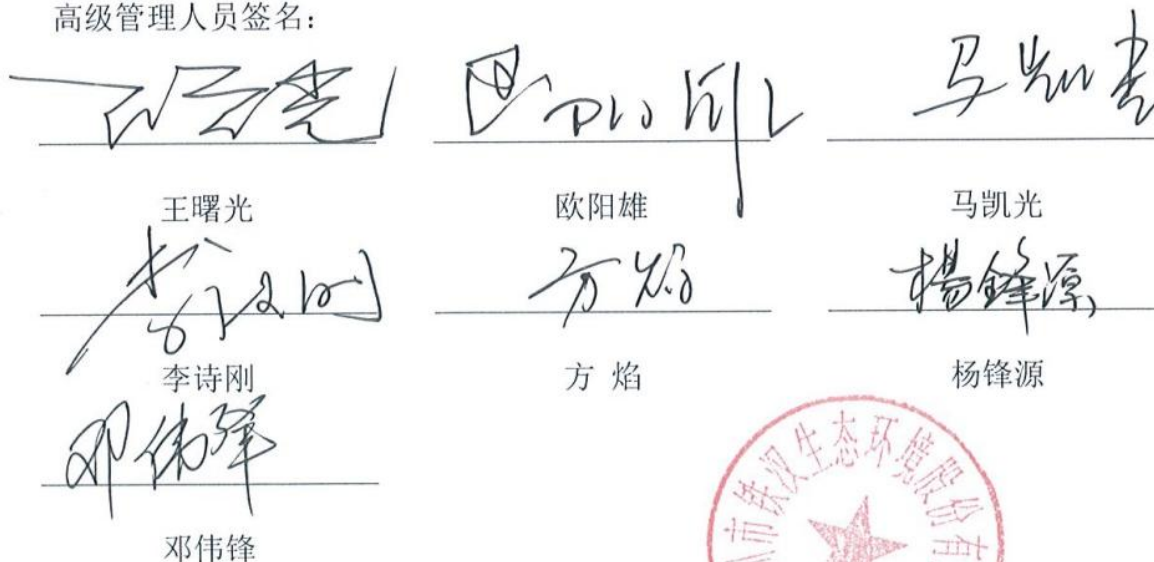 高级管理人员签名：
王曙光 欧阳雄 马凯光
李诗刚 方 焰 杨锋源
邓伟锋
市铁汉生态环境股份有